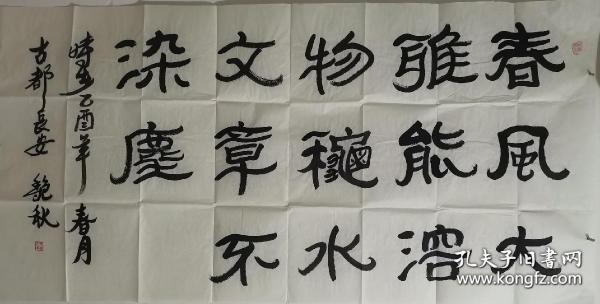 春風大
雅能溶
物龝水
文章不
染塵
時在乙酉年 春月
古都長安 秋
孔夫子旧书网